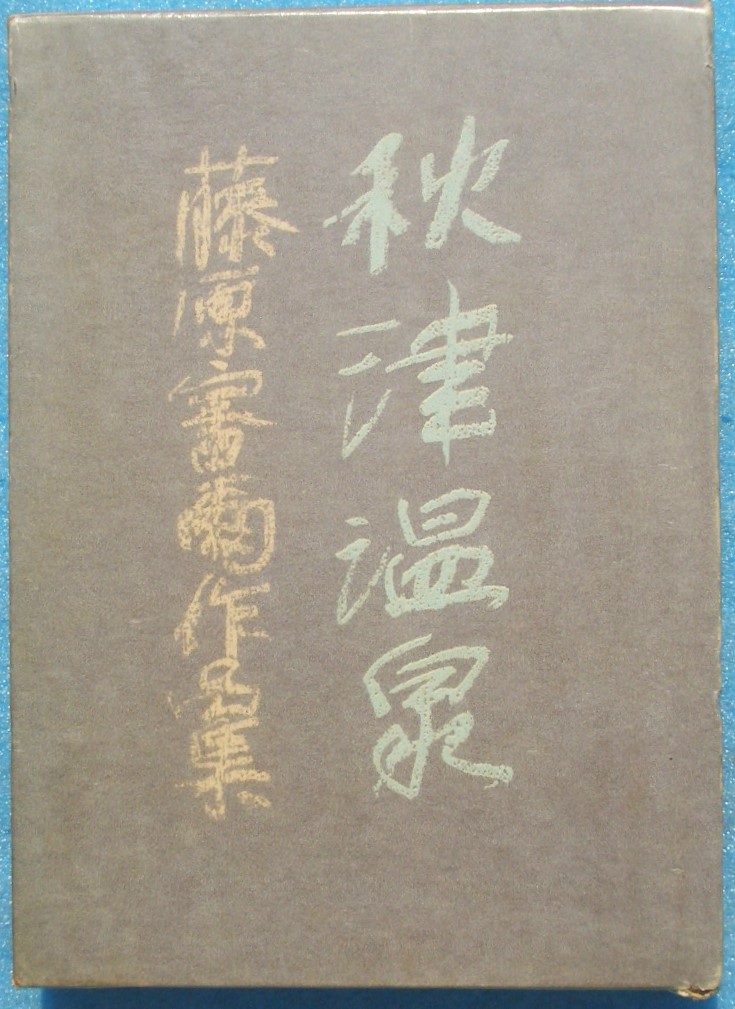 秋津温泉
藤原審爾作品集